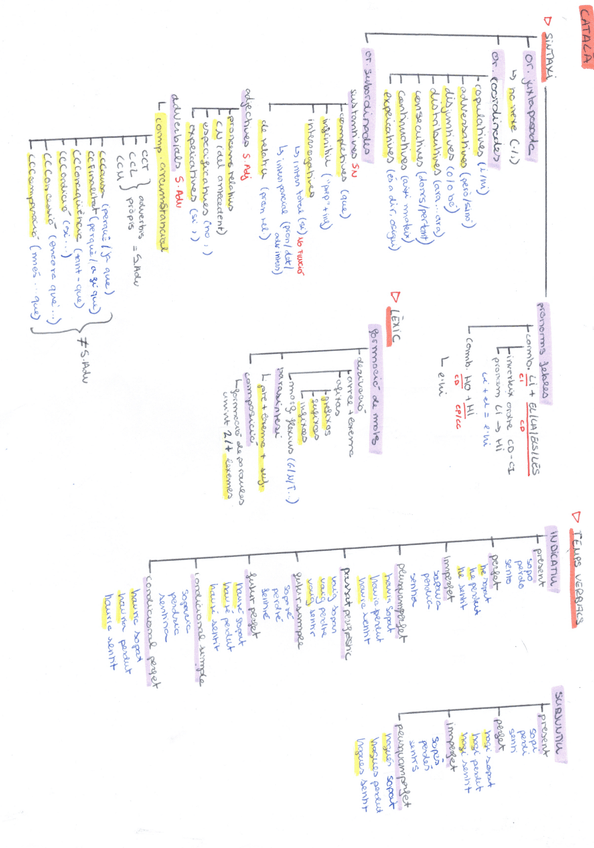 CATALÀ
▷ SINTAXI
or. juxtaposades
↳ no nexe (,/;)
or. coordinades
copulatives (i/ni)
adversatives (però/sinó)
disjuntives (o/o bé)
distributives (ara...ara)
consecutives (doncs/per tant)
continuatives (així mateix)
explicatives (és a dir, o sigui)
or. subordinades
substantives SN
completives (que)
infinitiu (-prp + inf)
interrogatives
↳ interr. total (si) no funció
↳ interr. parcial (pron/det/
adv inter)
de relatiu (pron rel)
adjectives S.Adj
pronoms relatius
CN (del antecedent)
especificatives (no ,)
explicatives (sí ,)
adverbials S.Adv
comp. circumstancial
CCT
CCL
CCM
adverbis
pròpis = S.Adv
CCCausa (perquè / ja que)
CCFinalitat (perquè / a fi que)
CCConseqüència (tant - que)
CCCondició (si...)
CCConcessió (encara que...)
CCComparació (més... que)
≠ S.Adv
pronoms febles
comb. CI + EL/LA/ELS/LES
CI CD
inverteix ordre CD-CI
pronom LI → HI
li + el = l'hi
comb. HO + HI
CD CP/CC
↳ l'hi
▷ LÈXIC
formació de mots
derivació
arrel = lexema
afixos
prefixos
sufixos
infixos
morf. flexius (G/N/T...)
parasíntesi
↳ pre + lexema + suf.
composició
↳ formació de paraules
unint 2/+ lexemes
▷ TEMPS VERBALS
INDICATIU
present
sopo
perdo
sento
perfet
he sopat
he perdut
he sentit
imperfet
sopava
perdia
sentia
plusquamperfet
havia sopat
havia perdut
havia sentit
passat perifràstic
vaig sopar
vaig perdre
vaig sentir
futur simple
soparé
perdré
sentiré
futur perfet
hauré sopat
hauré perdut
hauré sentit
condicional simple
soparia
perdria
sentiria
condicional perfet
hauria sopat
hauria perdut
hauria sentit
SUBJUNTIU
present
sopi
perdi
senti
perfet
hagi sopat
hagi perdut
hagi sentit
imperfet
sopés
perdés
sentís
plusquamperfet
hagués sopat
hagués perdut
hagués sentit